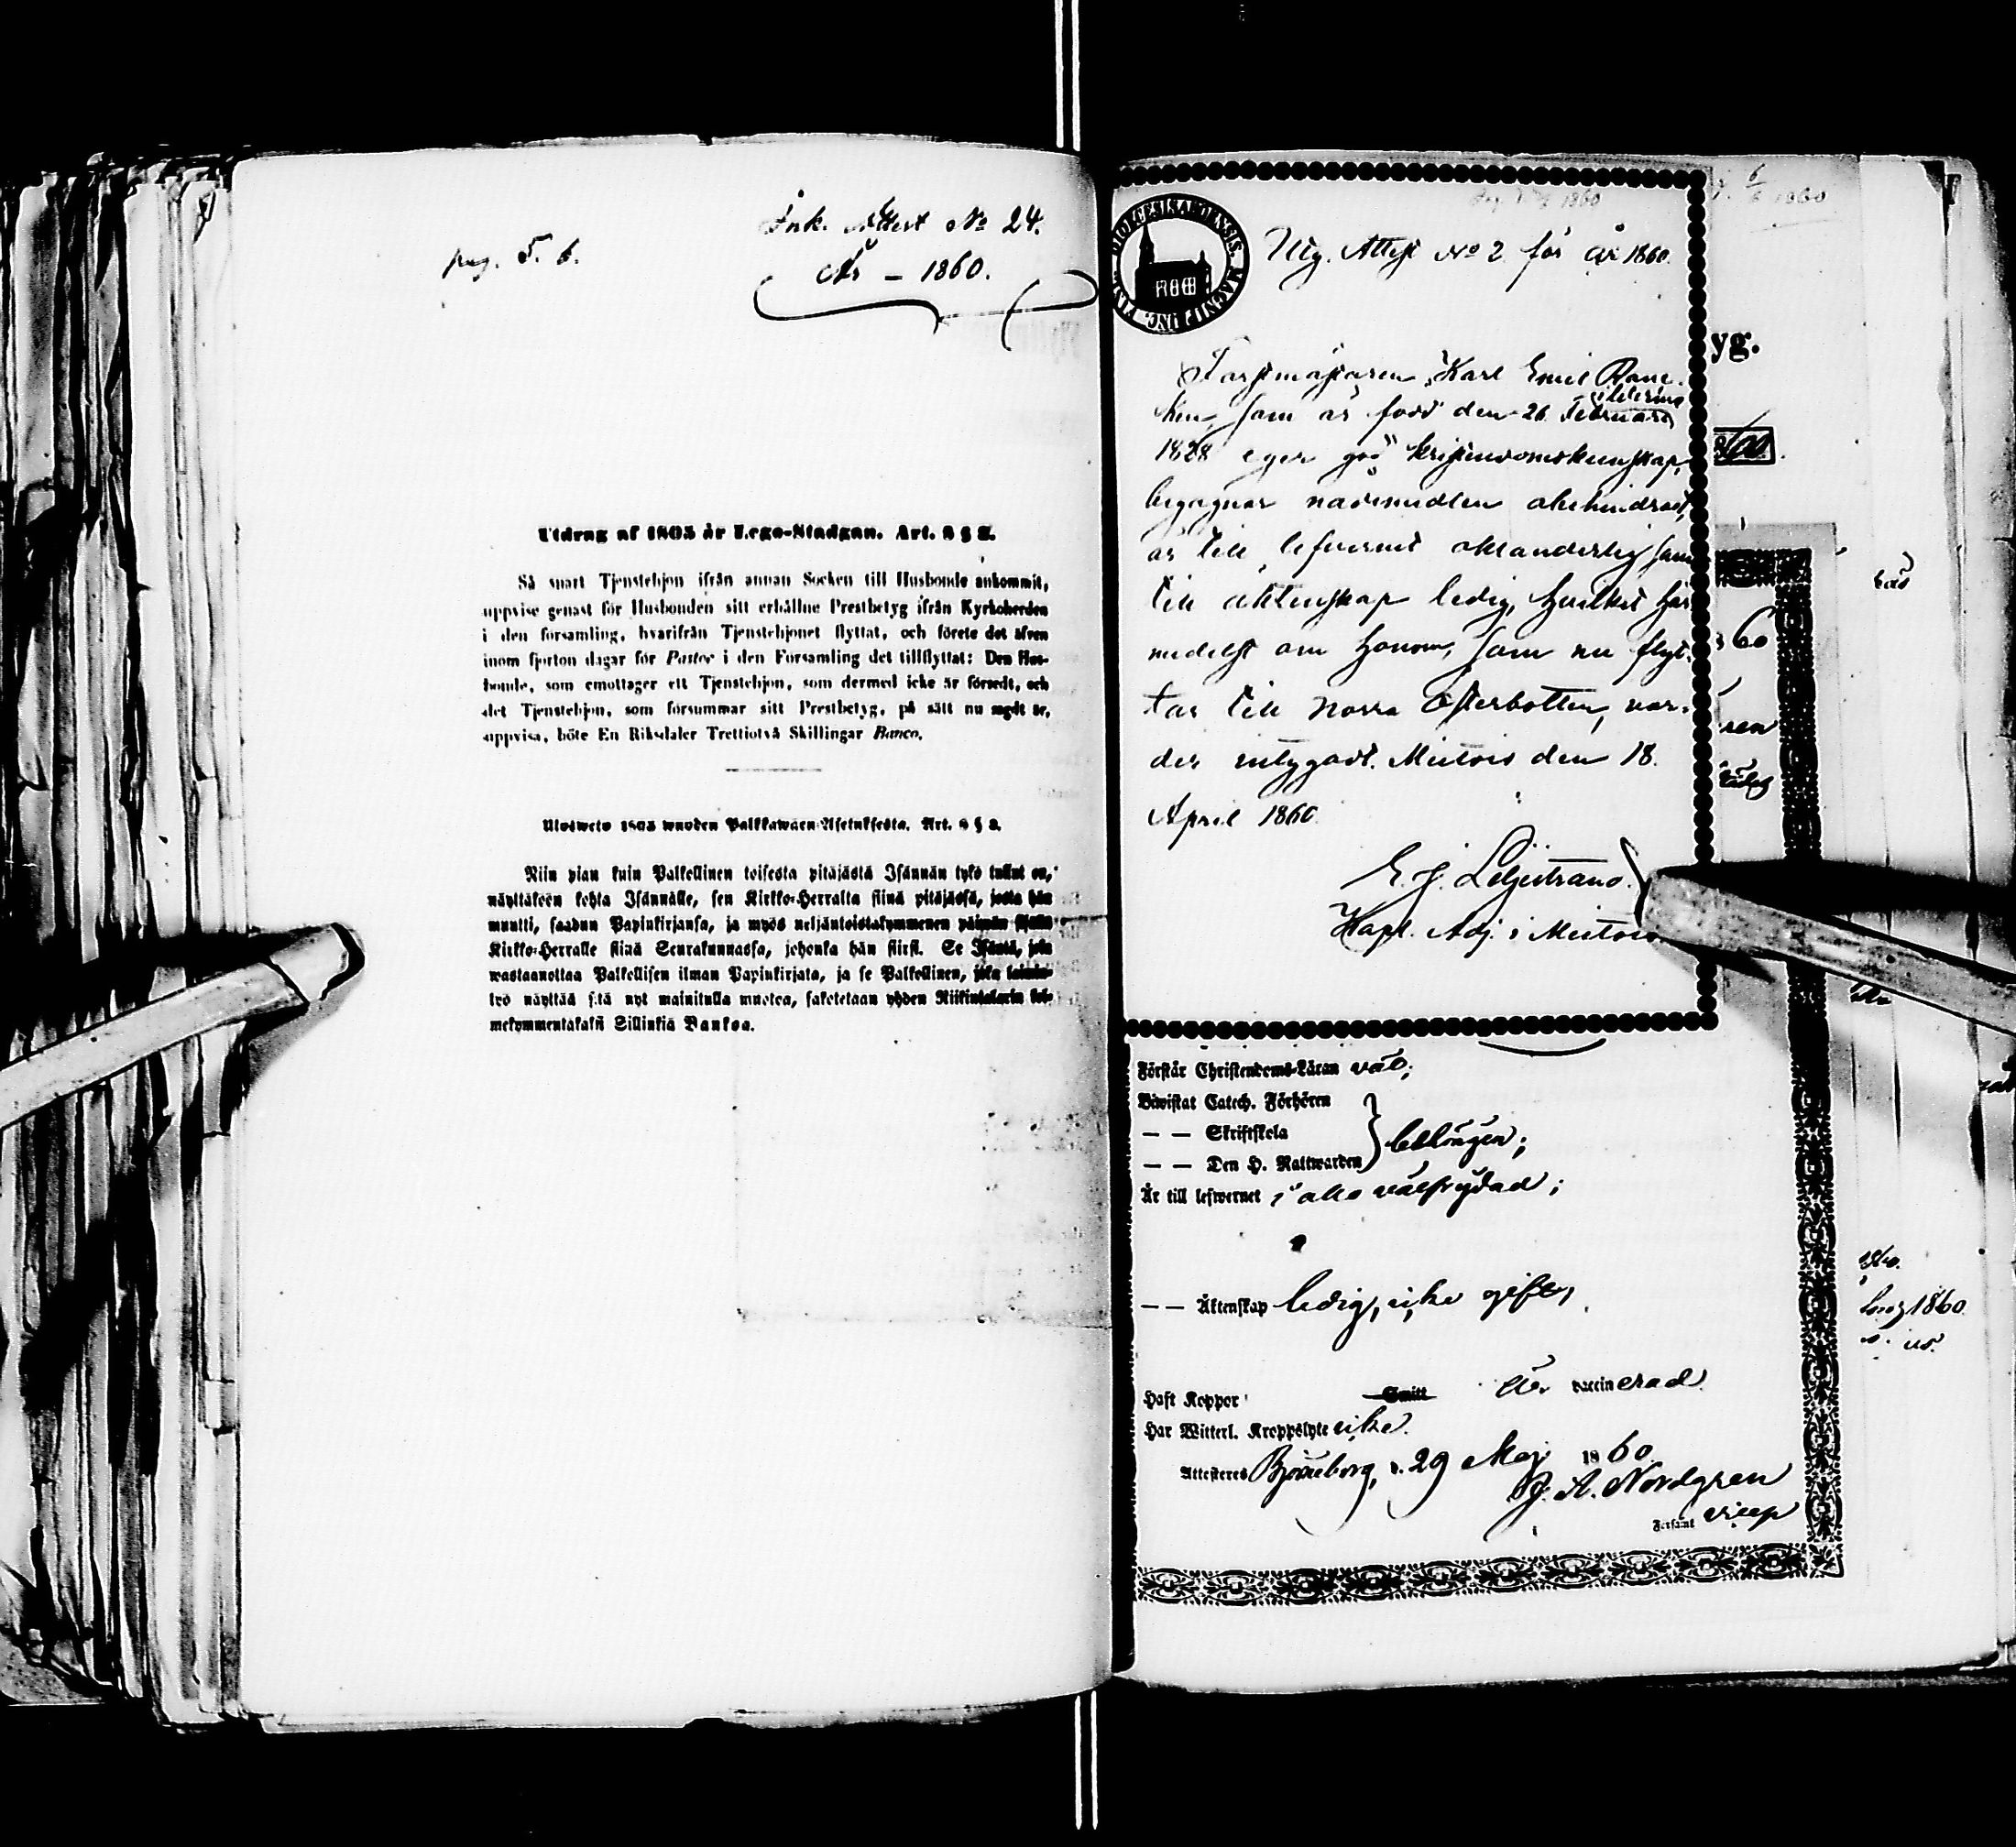 pag. 5. 6.
Ink. Attest No 24.
År – 1860.
Utdrag af 1805 år Lego-Stadgan. Art. 8 § 2.
Så snart Tjenstehjon ifrån annan Socken till Husbonde ankommit,
uppvise genast för Husbonden sitt erhållne Prestbetyg ifrån Kyrkoherden
i den församling, hvarifrån Tjenstehjonet flyttat, och förete det äfven
inom fjorton dagar för Pastor i den Församling det tillflyttat: Den Hus-
bonde, som emottager ett Tjenstehjon, som dermed icke är försedt, och
det Tjenstehjon, som försummar sitt Prestbetyg, på sätt nu sagdt är,
uppvisa, böte En Riksdaler Trettiotvå Skillingar Banco.
Ulosweto 1805 wuoden Palkkawäen-Asetuksesta. Art. 8 § 2.
Niin pian kuin Palkollinen toisesta pitäjästä Isännän tykö tullut on,
näyttäköön kohta Isännälle, sen Kirkko-Herralta siinä pitäjässä, josta hän
muutti, saadun Papinkirjansa, ja myös neljäntoistakymmenen päiwän sisällä
Kirkko-Herralle siinä Seurakunnassa, johonka hän siirsi. Se Isäntä, joka
wastaanottaa Palkollisen ilman Papinkirjata, ja se Palkollinen, joka laimin-
lyö näyttää sitä nyt mainitulla muotoa, sakotetaan yhden Riikintalarin kol-
mekymmentäkaksi Sillinkiä Bankoa.
Utg. Attest No 2 för år 1860.
Forstmästaren, Karl Emil Rane-
ken, som är född den 26 Februari
1828 eger god kristendomskunskap,
begagnar nådemedlen obehindradt,
är till lefvernet oklanderlig samt
till äktenskap ledig, hvilket här-
medelst om honom, som nu flyt-
tar till Norra Österbotten, var-
der intygadt. Mietois den 18
April 1860.
E. J. Liljestrand.
Kapl. Adj. i Mietois
yg.
60
Förstår Christendoms-Läran väl;
Biwistat Catech. Förhören
— — Skriftskola
— — Den H. Nattwarden } behörigen;
Är till lefwernet i allo välfrejdad;
— — Äktenskap ledig, icke gift,
Haft Koppor Smitt är vaccinerad.
Har Witterl. Kroppslyte icke.
Attesteras Björneborg, d. 29 Maj 1860.
J. A. Nordgren
Församl vicep
1860.